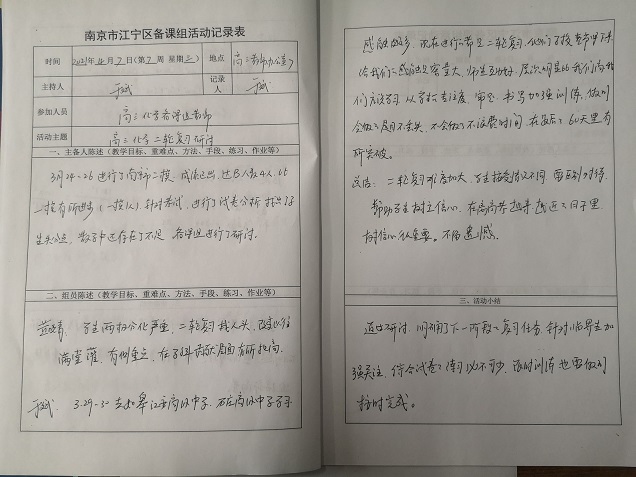 南京市江宁区备课组活动记录表
时间 2021年4月7日(第7周 星期三) 地点 高三 办公室
主持人 于斌 记录人 于斌
参加人员 高三化学备课组教师
活动主题 高三化学二轮复习研讨
一、主备人陈述(教学目标、重难点、方法、手段、练习、作业等)
3月24-26进行了南师二模,成绩已出,达B人数4人,比
一模有所进步(一模1人)针对考试,进行了试卷分析,找出了学
生失分点,教学中还存在了不足,备课组进行了研讨。
二、组员陈述(教学目标、重难点、方法、手段、练习、作业等)
学生两极分化严重,二轮复习 人头,改变以往
满堂灌,有侧重点,在学科 方面有所提高。
于斌. 3.29-30 去如皋 高级中学,石庄高级中学学习
感触很多,现在进行的都是二轮复习,他们学校老师带
给我们的感触是容量大,师生互动好,层次明显,我们
们应学习,从学校专注度,审题、书写加强训练,做到
会做的题目不丢失,不会做的不浪费时间,在最后60天里有
所突破。
总结:二轮复习难度加大,学生接受情况不同,要区别对待,
帮助学生树立信心,在离高考越来越近的日子里,
信心很重要。不留遗憾。
三、活动小结
通过研讨,明确了下一阶段的复习任务,针对临界生加
强关注,综合试卷的练习必不可少,限时训练也要做到
按时完成。